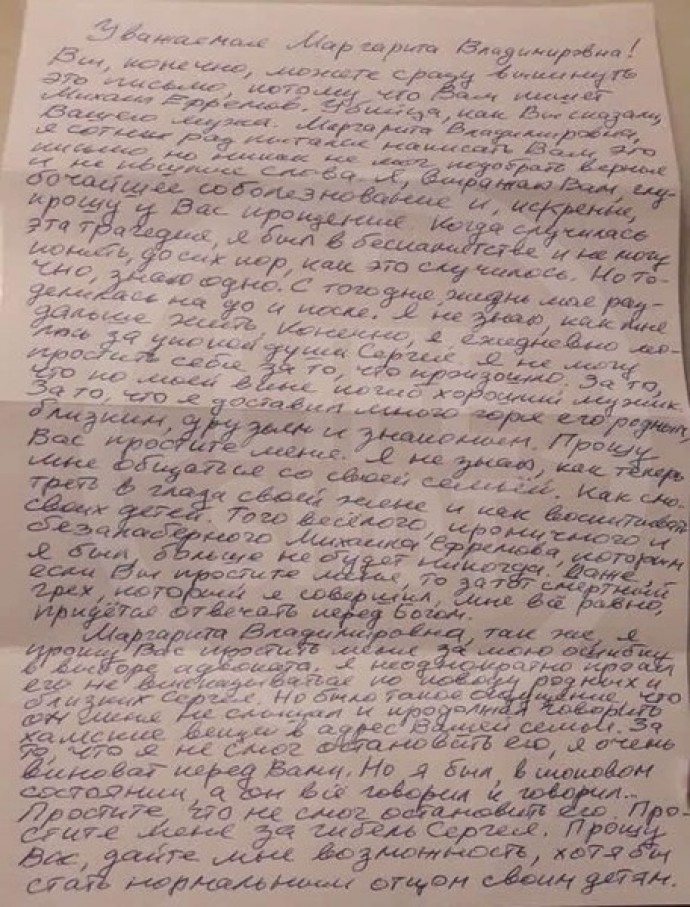 Уважаемая Маргарита Владимировна!
Вы, конечно, можете сразу выкинуть
это письмо, потому что Вам пишет
Михаил Ефремов. Убийца, как Вы сказали,
Вашего мужа. Маргарита Владимировна,
я сотни раз пытался написать Вам это
письмо но никак не мог подобрать верные
и не пошлые слова. Я, выражаю Вам, глу-
бочайшее соболезнование и, искренне,
прошу у Вас прощения. Когда случилась
эта трагедия, я был в беспамятстве и не могу
понять, до сих пор, как это случилось. Но то-
чно, знаю одно. С того дня жизнь моя раз-
делилась на до и после. Я не знаю, как мне
дальше жить. Конечно, я ежедневно мо-
люсь за упокой души Сергея. Я не могу
простить себе за то, что произошло. За то,
что по моей вине погиб хороший мужик.
За то, что я доставил много горя его родным,
близким, друзьям и знакомым. Прошу
Вас простите меня. Я не знаю, как теперь
мне общаться со своей семьёй. Как смо-
треть в глаза своей жене и как воспитывать
своих детей. Того весёлого, ироничного и
безалаберного Михаила Ефремова, которым
я был, больше не будет никогда. Даже,
если Вы простите меня, то за тот смертный
грех, который я совершил, мне всё равно,
придётся отвечать перед Богом.
Маргарита Владимировна, так же, я
прошу Вас простить меня за мою ошибку
в выборе адвоката. Я неоднократно просил
его не высказываться по поводу родных и
близких Сергея. Но было такое ощущение, что
он меня не слышал и продолжал говорить
хамские вещи в адрес Вашей семьи. За
то, что я не смог остановить его, я очень
виноват перед Вами. Но я был, в шоковом
состоянии, а он всё говорил и говорил...
Простите, что не смог остановить его. Про-
стите меня за гибель Сергея. Прошу
Вас, дайте мне возможность, хотя бы
стать нормальным отцом своим детям.